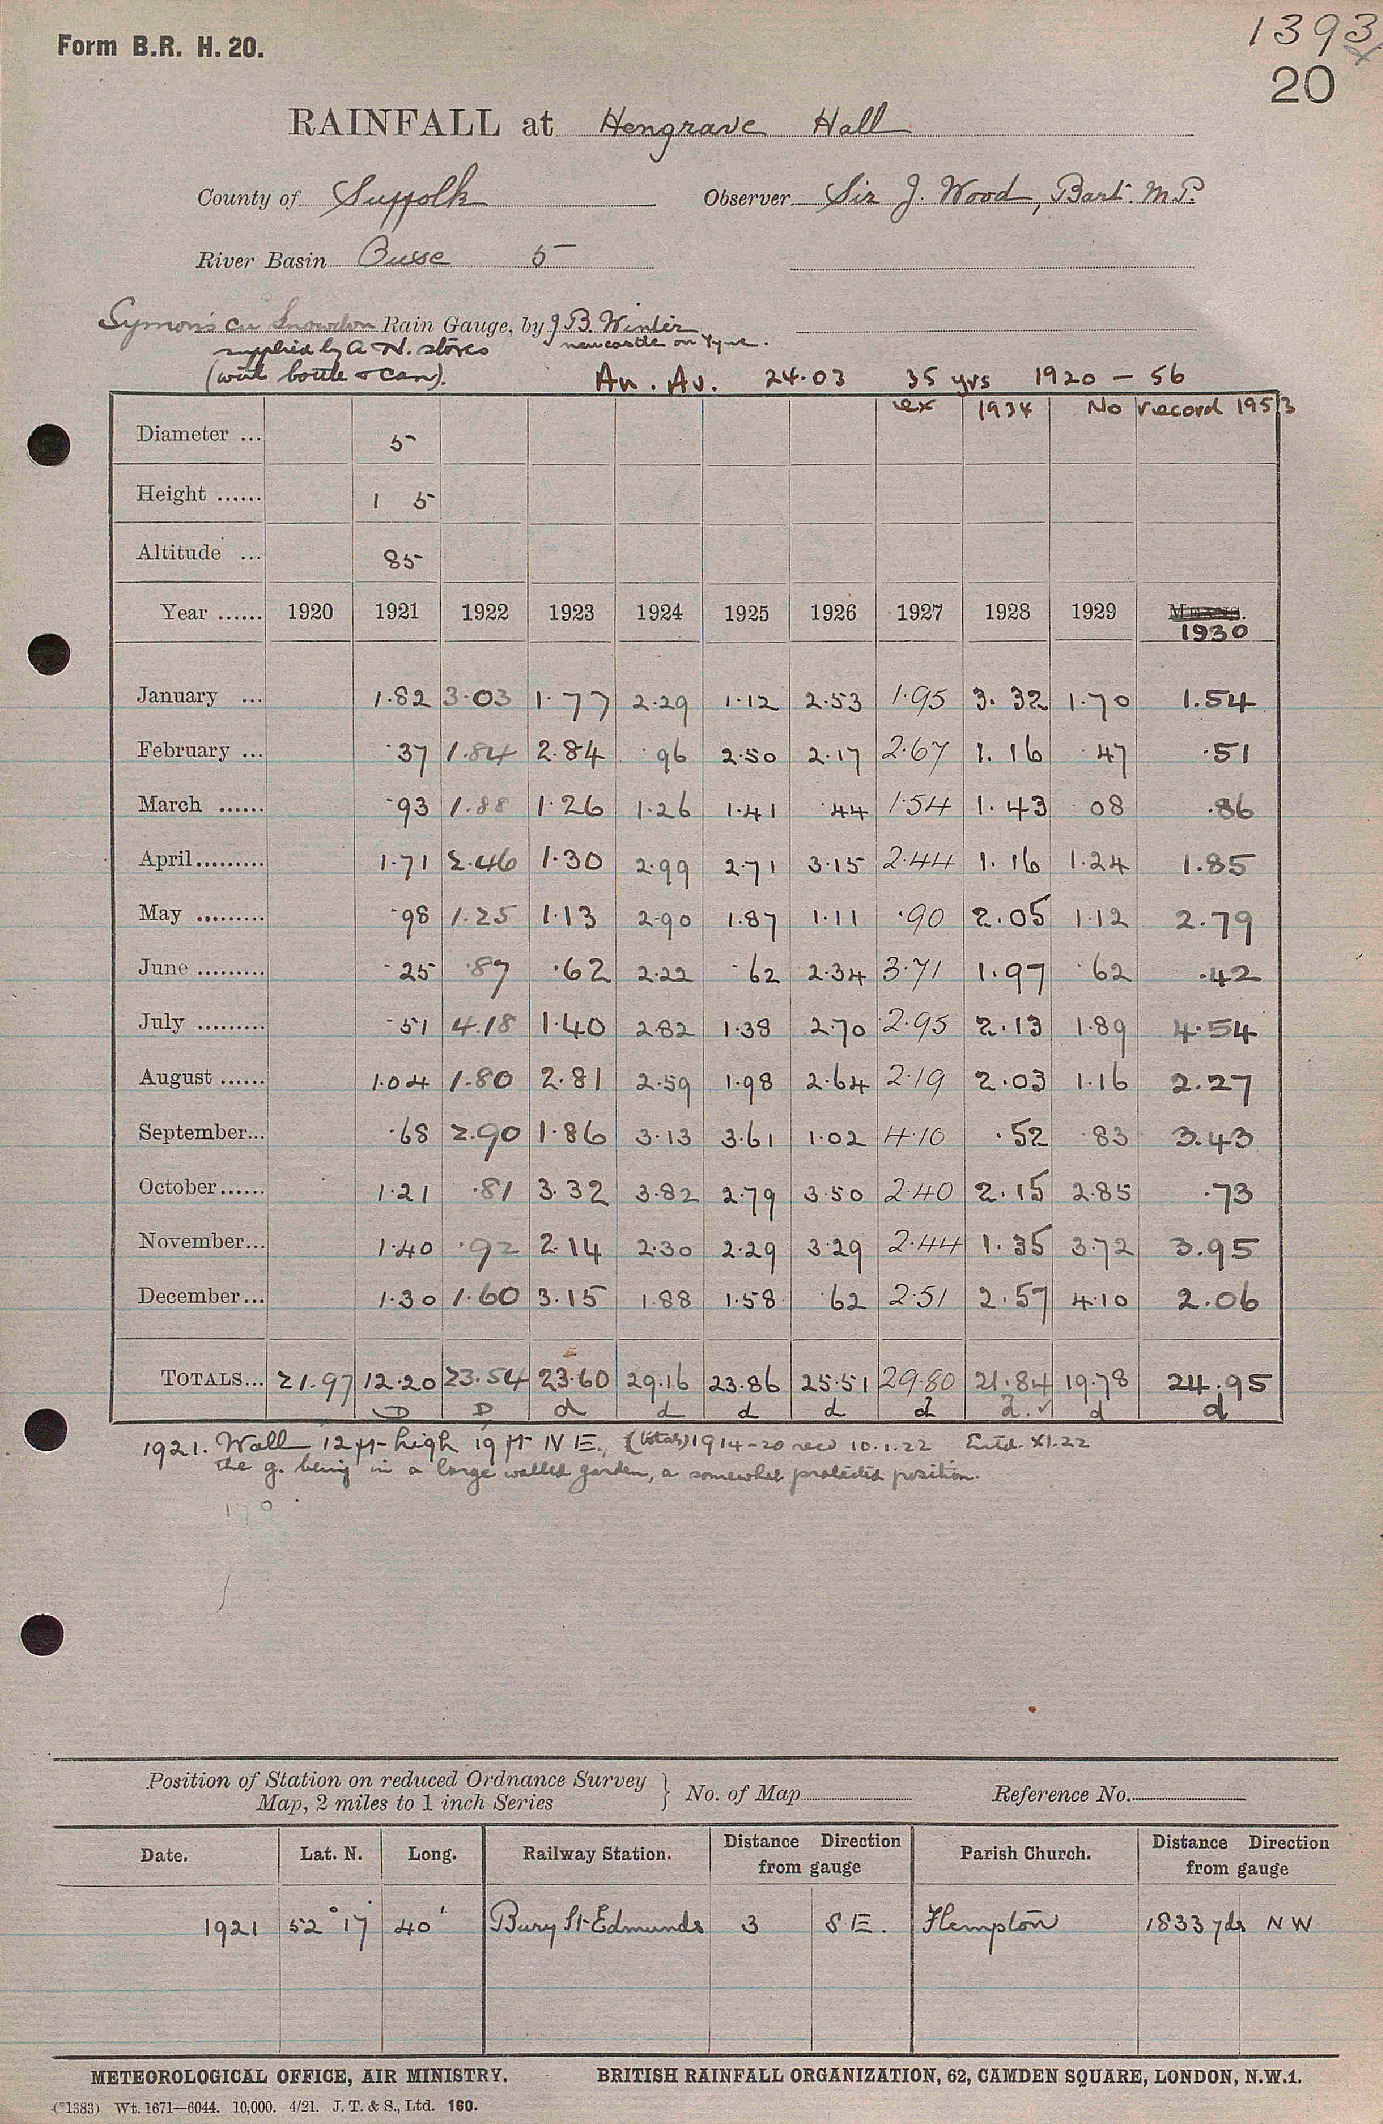 Form B.R. H. 20.
1393
20
RAINFALL at Hengrave Hall
County of Suffolk Observer Sir J. Wood, Bart. M.P.
River Basin Ouse 5
Symon's Snowdon Rain Gauge, by J B. Winter
supplied by A N. stores newcastle on Tyne.
(with bottle & can). An. Av. 24.03 35 yrs 1920 – 56
ex 1934 No record 1953
Diameter ... 5
Height ...... 1 5
Altitude ... 85
Year ...... 1920 1921 1922 1923 1924 1925 1926 1927 1928 1929 Means.
1930
January ... 1.82 3.03 1.77 2.29 1.12 2.53 1.95 3.32 1.70 1.54
February ... .37 1.84 2.84 .96 2.50 2.17 2.67 1.16 .47 .51
March ...... .93 1.88 1.26 1.26 1.41 .44 1.54 1.43 08 .86
April......... 1.71 2.46 1.30 2.99 2.71 3.15 2.44 1.16 1.24 1.85
May ......... .98 1.25 1.13 2.90 1.87 1.11 .90 2.05 1.12 2.79
June ......... .25 .87 .62 2.22 .62 2.34 3.71 1.97 .62 .42
July ......... .51 4.18 1.40 2.82 1.38 2.70 2.95 2.13 1.89 4.54
August ...... 1.04 1.80 2.81 2.59 1.98 2.64 2.19 2.03 1.16 2.27
September... .68 2.90 1.86 3.13 3.61 1.02 4.10 .52 .83 3.43
October...... 1.21 .81 3.32 3.82 2.79 3.50 2.40 2.15 2.85 .73
November... 1.40 .92 2.14 2.30 2.29 3.29 2.44 1.35 3.72 3.95
December... 1.30 1.60 3.15 1.88 1.58 .62 2.51 2.57 4.10 2.06
TOTALS... 21.97 12.20 23.54 23.60 29.16 23.86 25.51 29.80 21.84 19.78 24.95
D D d d d d d d. ✓ d d
1921. Wall 12 ft high 19 ft N E. (totals) 1914-20 recd 10.1.22 Entd. XI.22
The g. being in a large walled garden, a somewhat protected position.
Position of Station on reduced Ordnance Survey
Map, 2 miles to 1 inch Series } No. of Map Reference No.
Date. Lat. N. Long. Railway Station. Distance Direction from gauge Parish Church. Distance Direction from gauge
1921 52° 17' 40' Bury St Edmunds 3 S E. Flempton 1833 yds N W
METEOROLOGICAL OFFICE, AIR MINISTRY. BRITISH RAINFALL ORGANIZATION, 62, CAMDEN SQUARE, LONDON, N.W.1.
(*1383) Wt. 1671—6044. 10,000. 4/21. J. T. & S., Ltd. 160.